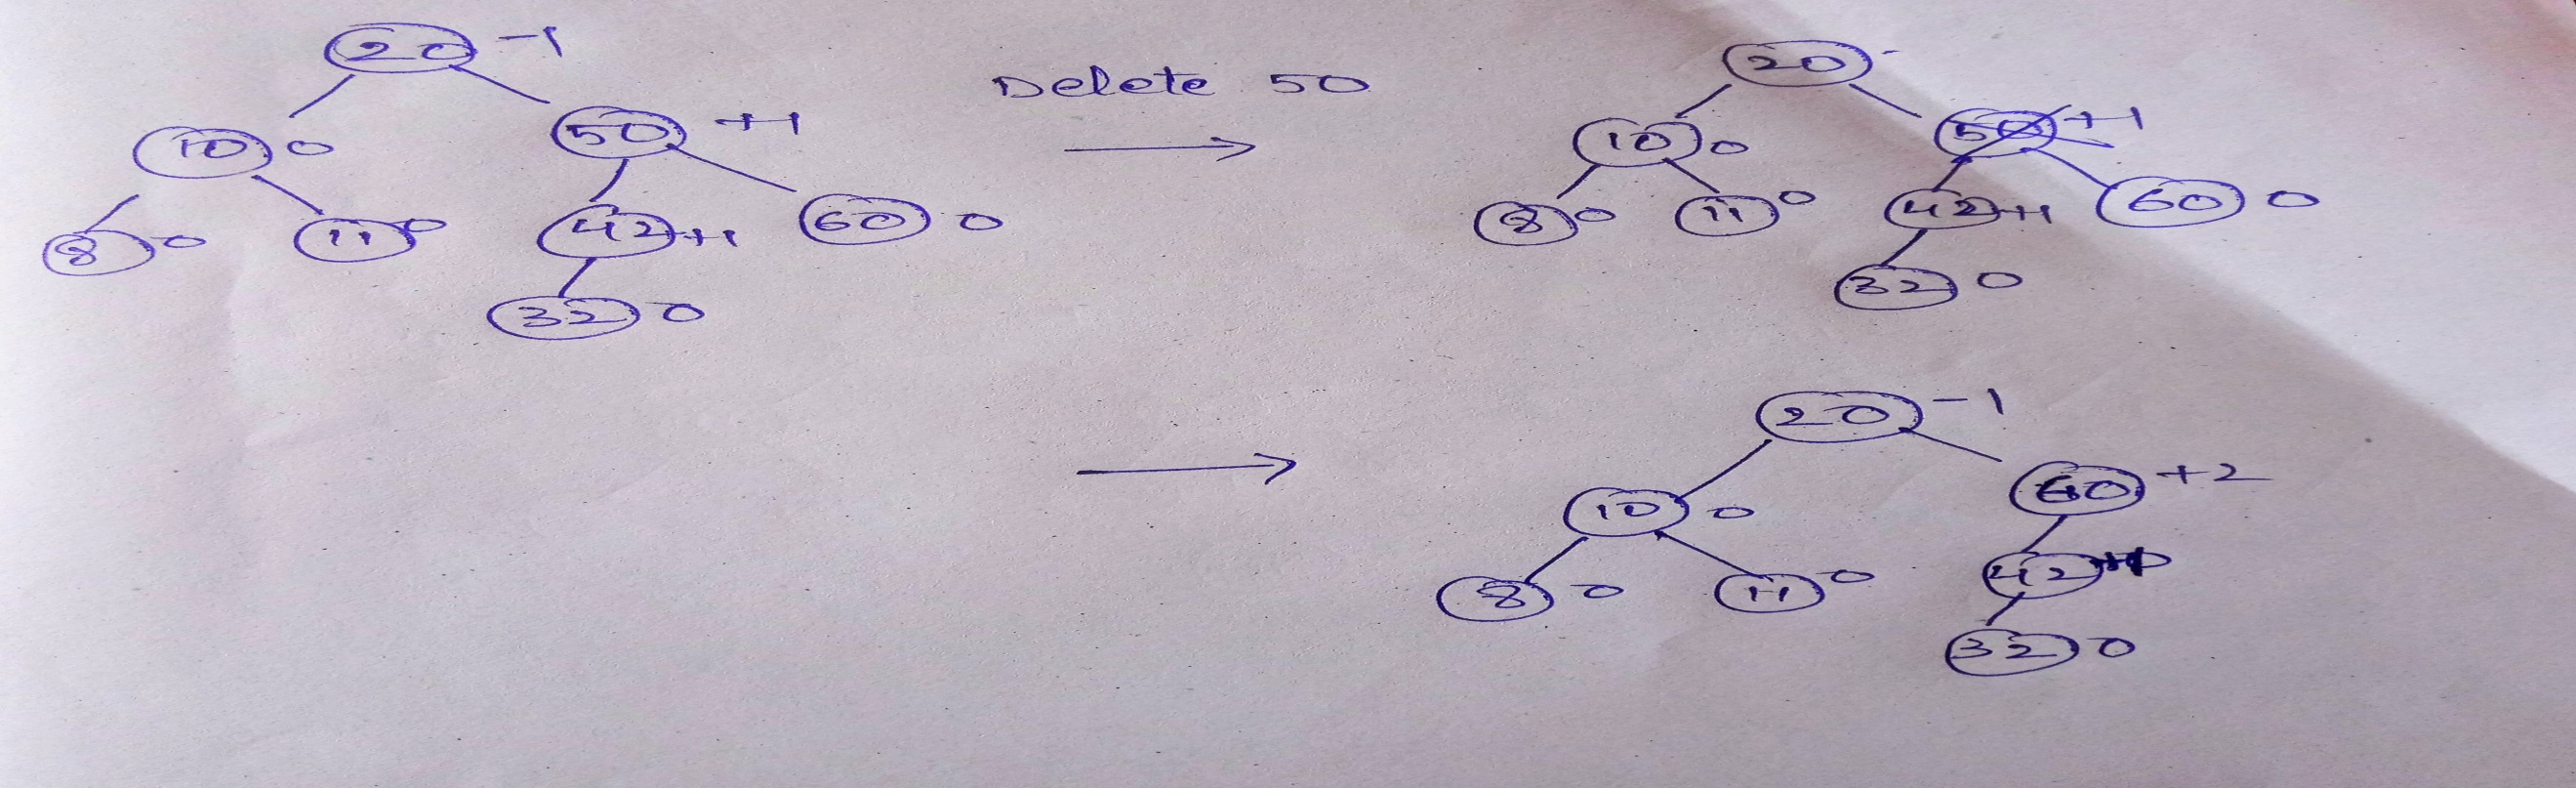 20 -1
10 0
50 +1
8 0
11 0
42 +1
60 0
32 0
Delete 50
20
10 0
50 +1
8 0
11 0
42 +1
60 0
32 0
20 -1
10 0
60 +2
8 0
11 0
42
32 0